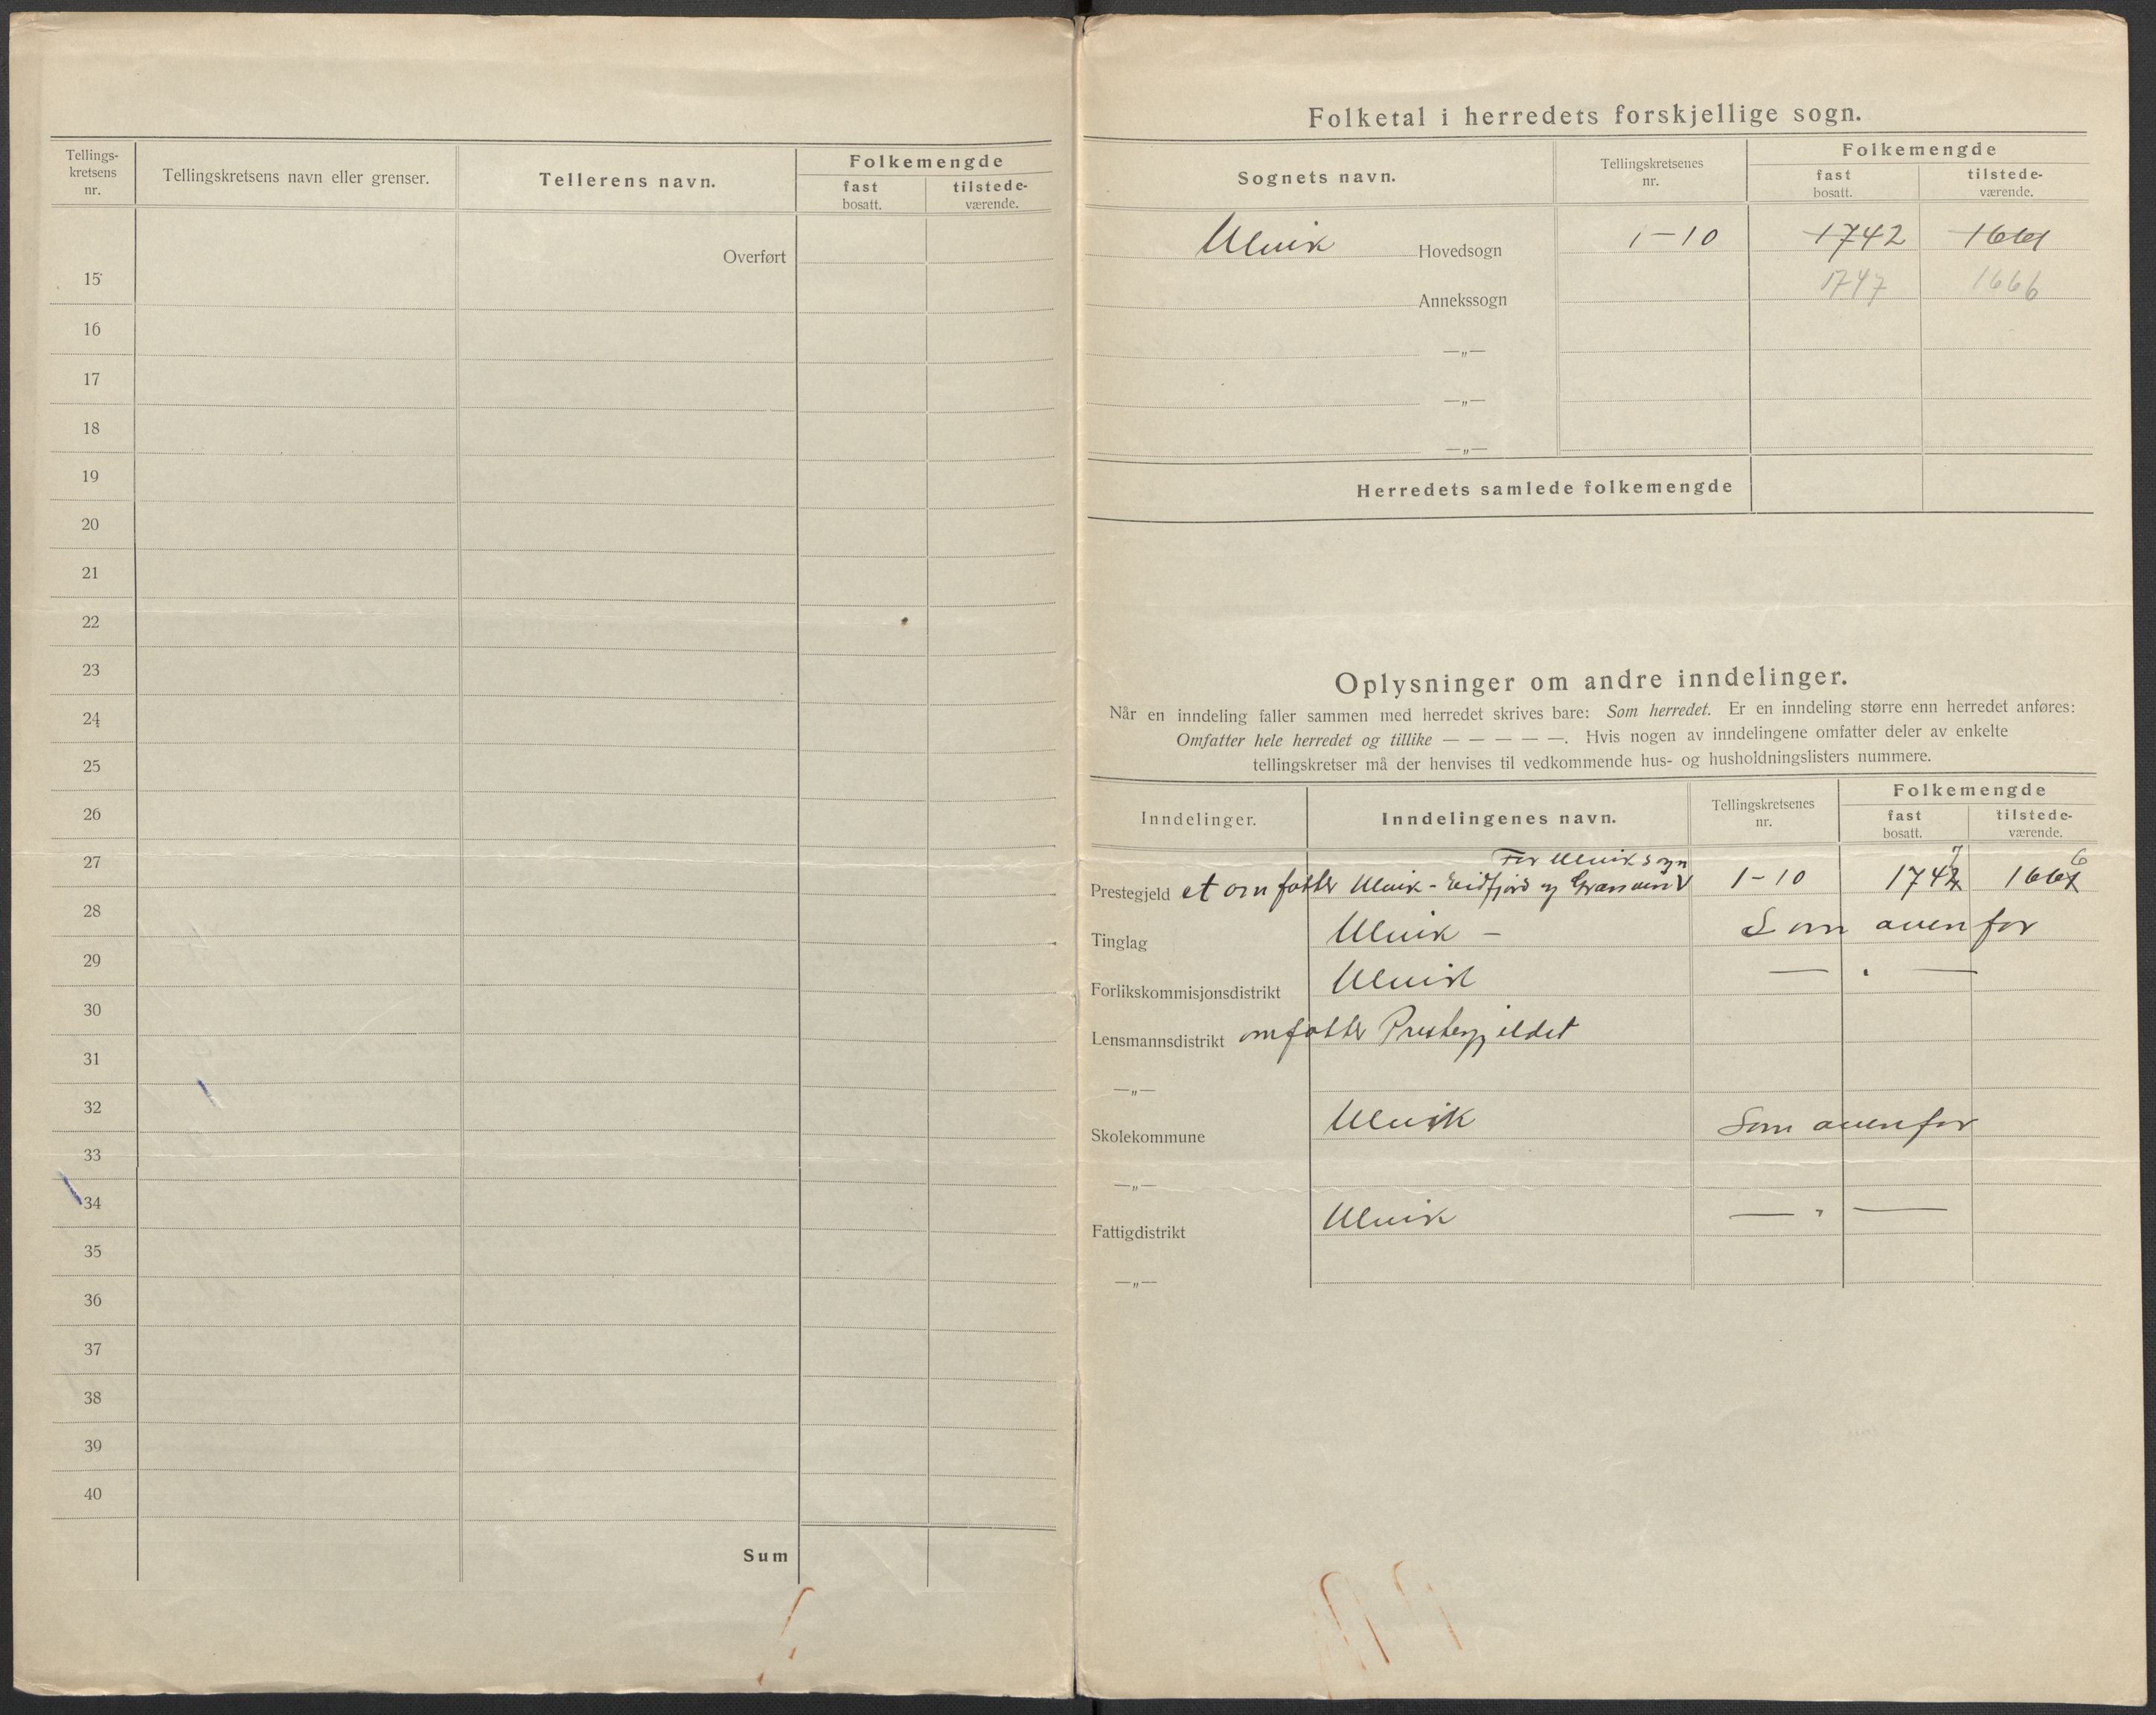 Tellings-
kretsens
nr.
Tellingskretsens navn eller grenser.
Tellerens navn.
Folkemengde
fast
bosatt.
tilstede-
værende.
Overført
15
16
17
18
19
20
21
22
23
24
25
26
27
28
29
30
31
32
33
34
35
36
37
38
39
40
Sum
Folketal i herredets forskjellige sogn.
Sognets navn.
Tellingskretsenes
nr.
Folkemengde
fast
bosatt.
tilstede-
værende.
Ulvik Hovedsogn 1-10 1742 1661
Annekssogn 1747 1666
—„—
—„—
—„—
Herredets samlede folkemengde
Oplysninger om andre inndelinger.
Når en inndeling faller sammen med herredet skrives bare: Som herredet. Er en inndeling større enn herredet anføres:
Omfatter hele herredet og tillike — — — — —. Hvis nogen av inndelingene omfatter deler av enkelte
tellingskretser må der henvises til vedkommende hus- og husholdningslisters nummere.
Inndelinger.
Inndelingenes navn.
Tellingskretsenes
nr.
Folkemengde
fast
bosatt.
tilstede-
værende.
For Ulvik sogn 7 6
Prestegjeld et omfatter Ulvik - Eidfjord og Granvin 1-10 1742 1661
Tinglag Ulvik - Som ovenfor
Forlikskommisjonsdistrikt Ulvik — " —
Lensmannsdistrikt omfatter Prestegjeldet
—„—
Skolekommune Ulvik Som ovenfor
—„—
Fattigdistrikt Ulvik — " —
—„—